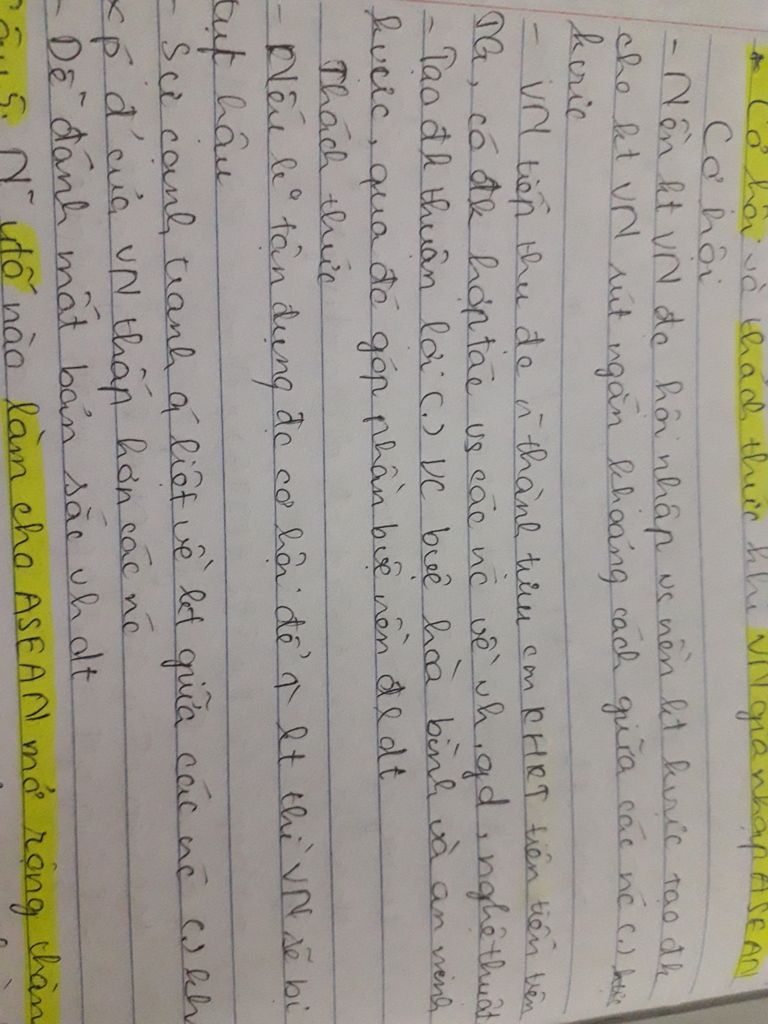 * Cơ hội và thách thức khi VN gia nhập ASEAN
Cơ hội
- Nền kt VN đc hội nhập vs nền kt kvực tạo đk
cho kt VN rút ngắn khoảng cách giữa các nc (.)
kvực
- VN tiếp thu đc n~ thành tựu cm KHKT tiên tiến trên
TG, có đk hợp tác vs các nc về vh, gd, nghệ thuật
- Tạo đk thuận lợi (.) vc bvệ hòa bình và an ninh
kvực, qua đó góp phần bvệ nền đldt
Thách thức
- Nếu ko tận dụng đc cơ hội để ↑ kt thì VN sẽ bị
tụt hậu
- Sự cạnh tranh q' liệt về kt giữa các nc (.) kh
x p' đ' của VN thấp hơn các nc
- Dễ đánh mất bản sắc vh dt
Câu 5. N tố nào làm cho ASEAN mở rộng thành